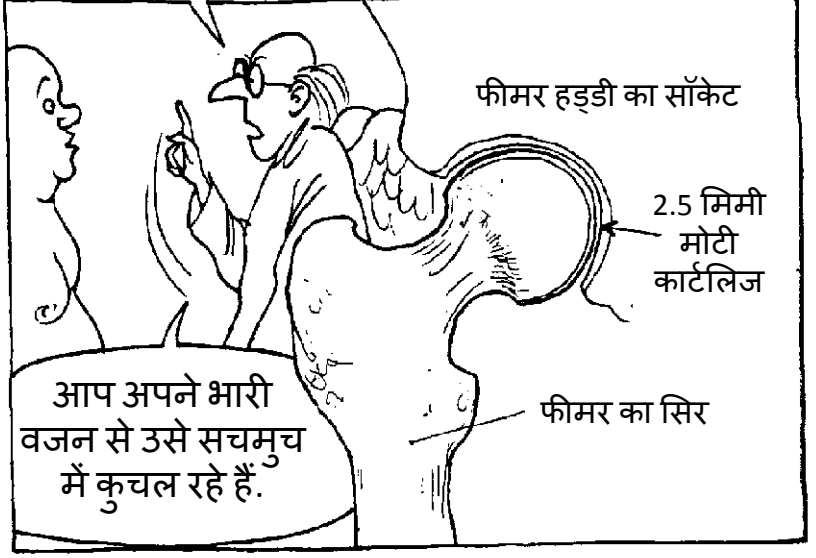 फीमर हड्डी का सॉकेट
2.5 मिमी
मोटी
कार्टलिज
फीमर का सिर
आप अपने भारी
वजन से उसे सचमुच
में कुचल रहे हैं.